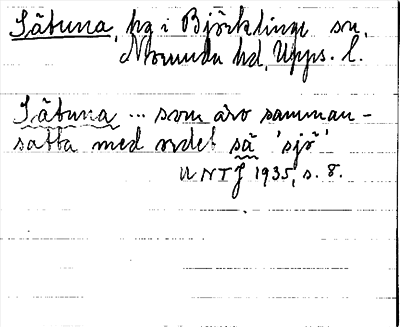 Säbuna, hg i Björklinge sn,
Norunda hd, Upps. l.
Säbuna ... som äro samman-
satta med ordet sä 'sjö'
UNTJ 1935, s. 8.